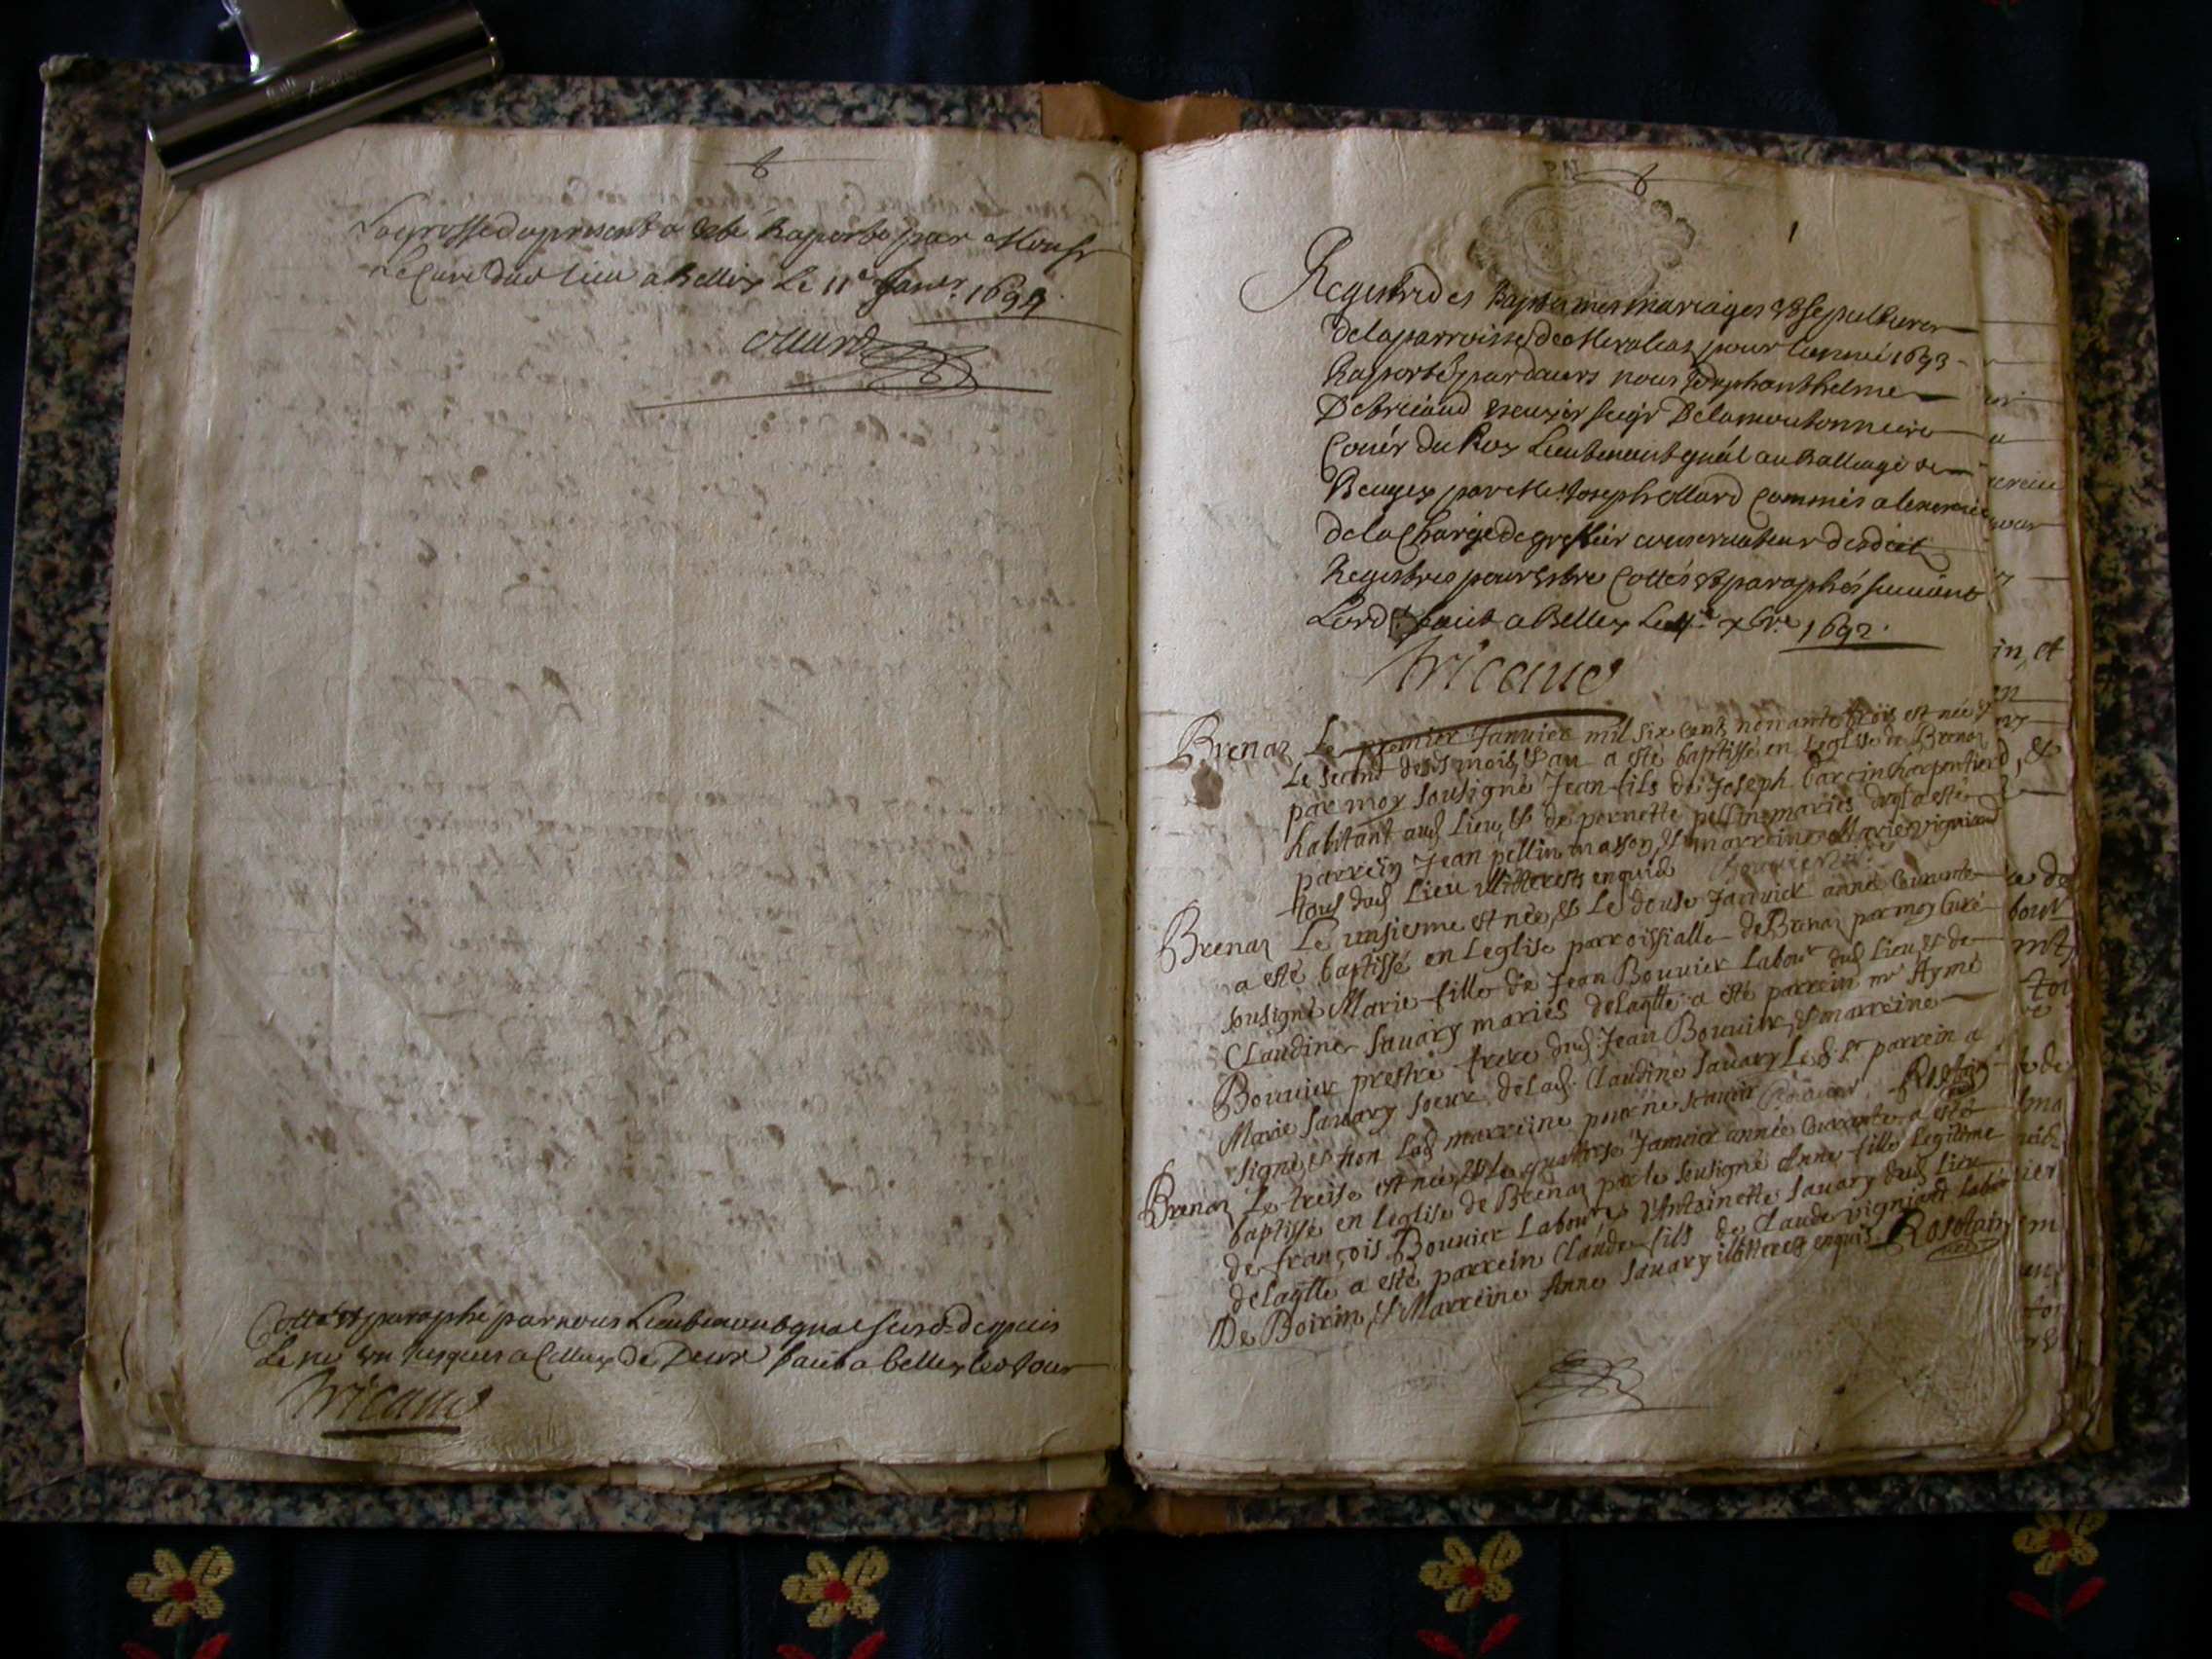 La grosse du present a esté Raporté par Monsr
Le Curé dud lieu a Belley Le 11e Janvr 1694
Cotté et paraphé par nous Lieutenant gnal susd depuis
Le no un jusques a Celluy de Deux fait a belley led jour
Tricaud
Registre des Baptesmes mariages et sepultures
de la parroisse de pour l'année 1693
Raporté pardavers nous Anthelme
De tricaud escuyer seigr De la moutonniere
Coner du Roy Lieutenant gnál au Balliage de
Beugey par Me Joseph Collard Commis a lexercice
de la Charge de greffier conservateur desdits
Registres pour estre Cottés et paraphés suivant
Lord fait a Belley Le xbre 1692
Tricaud
Brenaz Le premier Janvier mil six cents nonante trois est née et
Le second desds mois et an a esté baptissé en leglise de Brenaz
par moy sousigné Jean fils de Joseph charpentier
habitant aud Lieu et de pernette pellin mariés duql a esté
parrein Jean pellin masson, et marreine Marie vigniand
tous dud Lieu illitterés enquis
Brenaz Le unsiesme est née, et Le douse Janvier année Courante
a esté baptissé en Leglise parroissialle de Brenaz par moy Curé
sousigné Marie fille de Jean Bouvier Labour dud Lieu et de
Claudine Savary mariés de laqlle a esté parrein mr Aymé
Bouvier prestre frere dud Jean Bouvier, et marreine
Marie Savary soeur de lad Claudine Savary Led Sr parrein a
signé, et non Lad marreine pour ne scavoir Bouvier Rosetain
Brenaz Le treise est née, et le quatorse Janvier année Courante a esté
baptissé en leglise de Brenaz par le sousigné Anne fille Legitime
de françois Bouvier Labour et d'Antoinette Savary dud Lieu
de laqlle a esté parrein Claude fils de Claude vigniand Labor
De Boirin, et Marreine Anne Savary illitterés enquis Rosetain